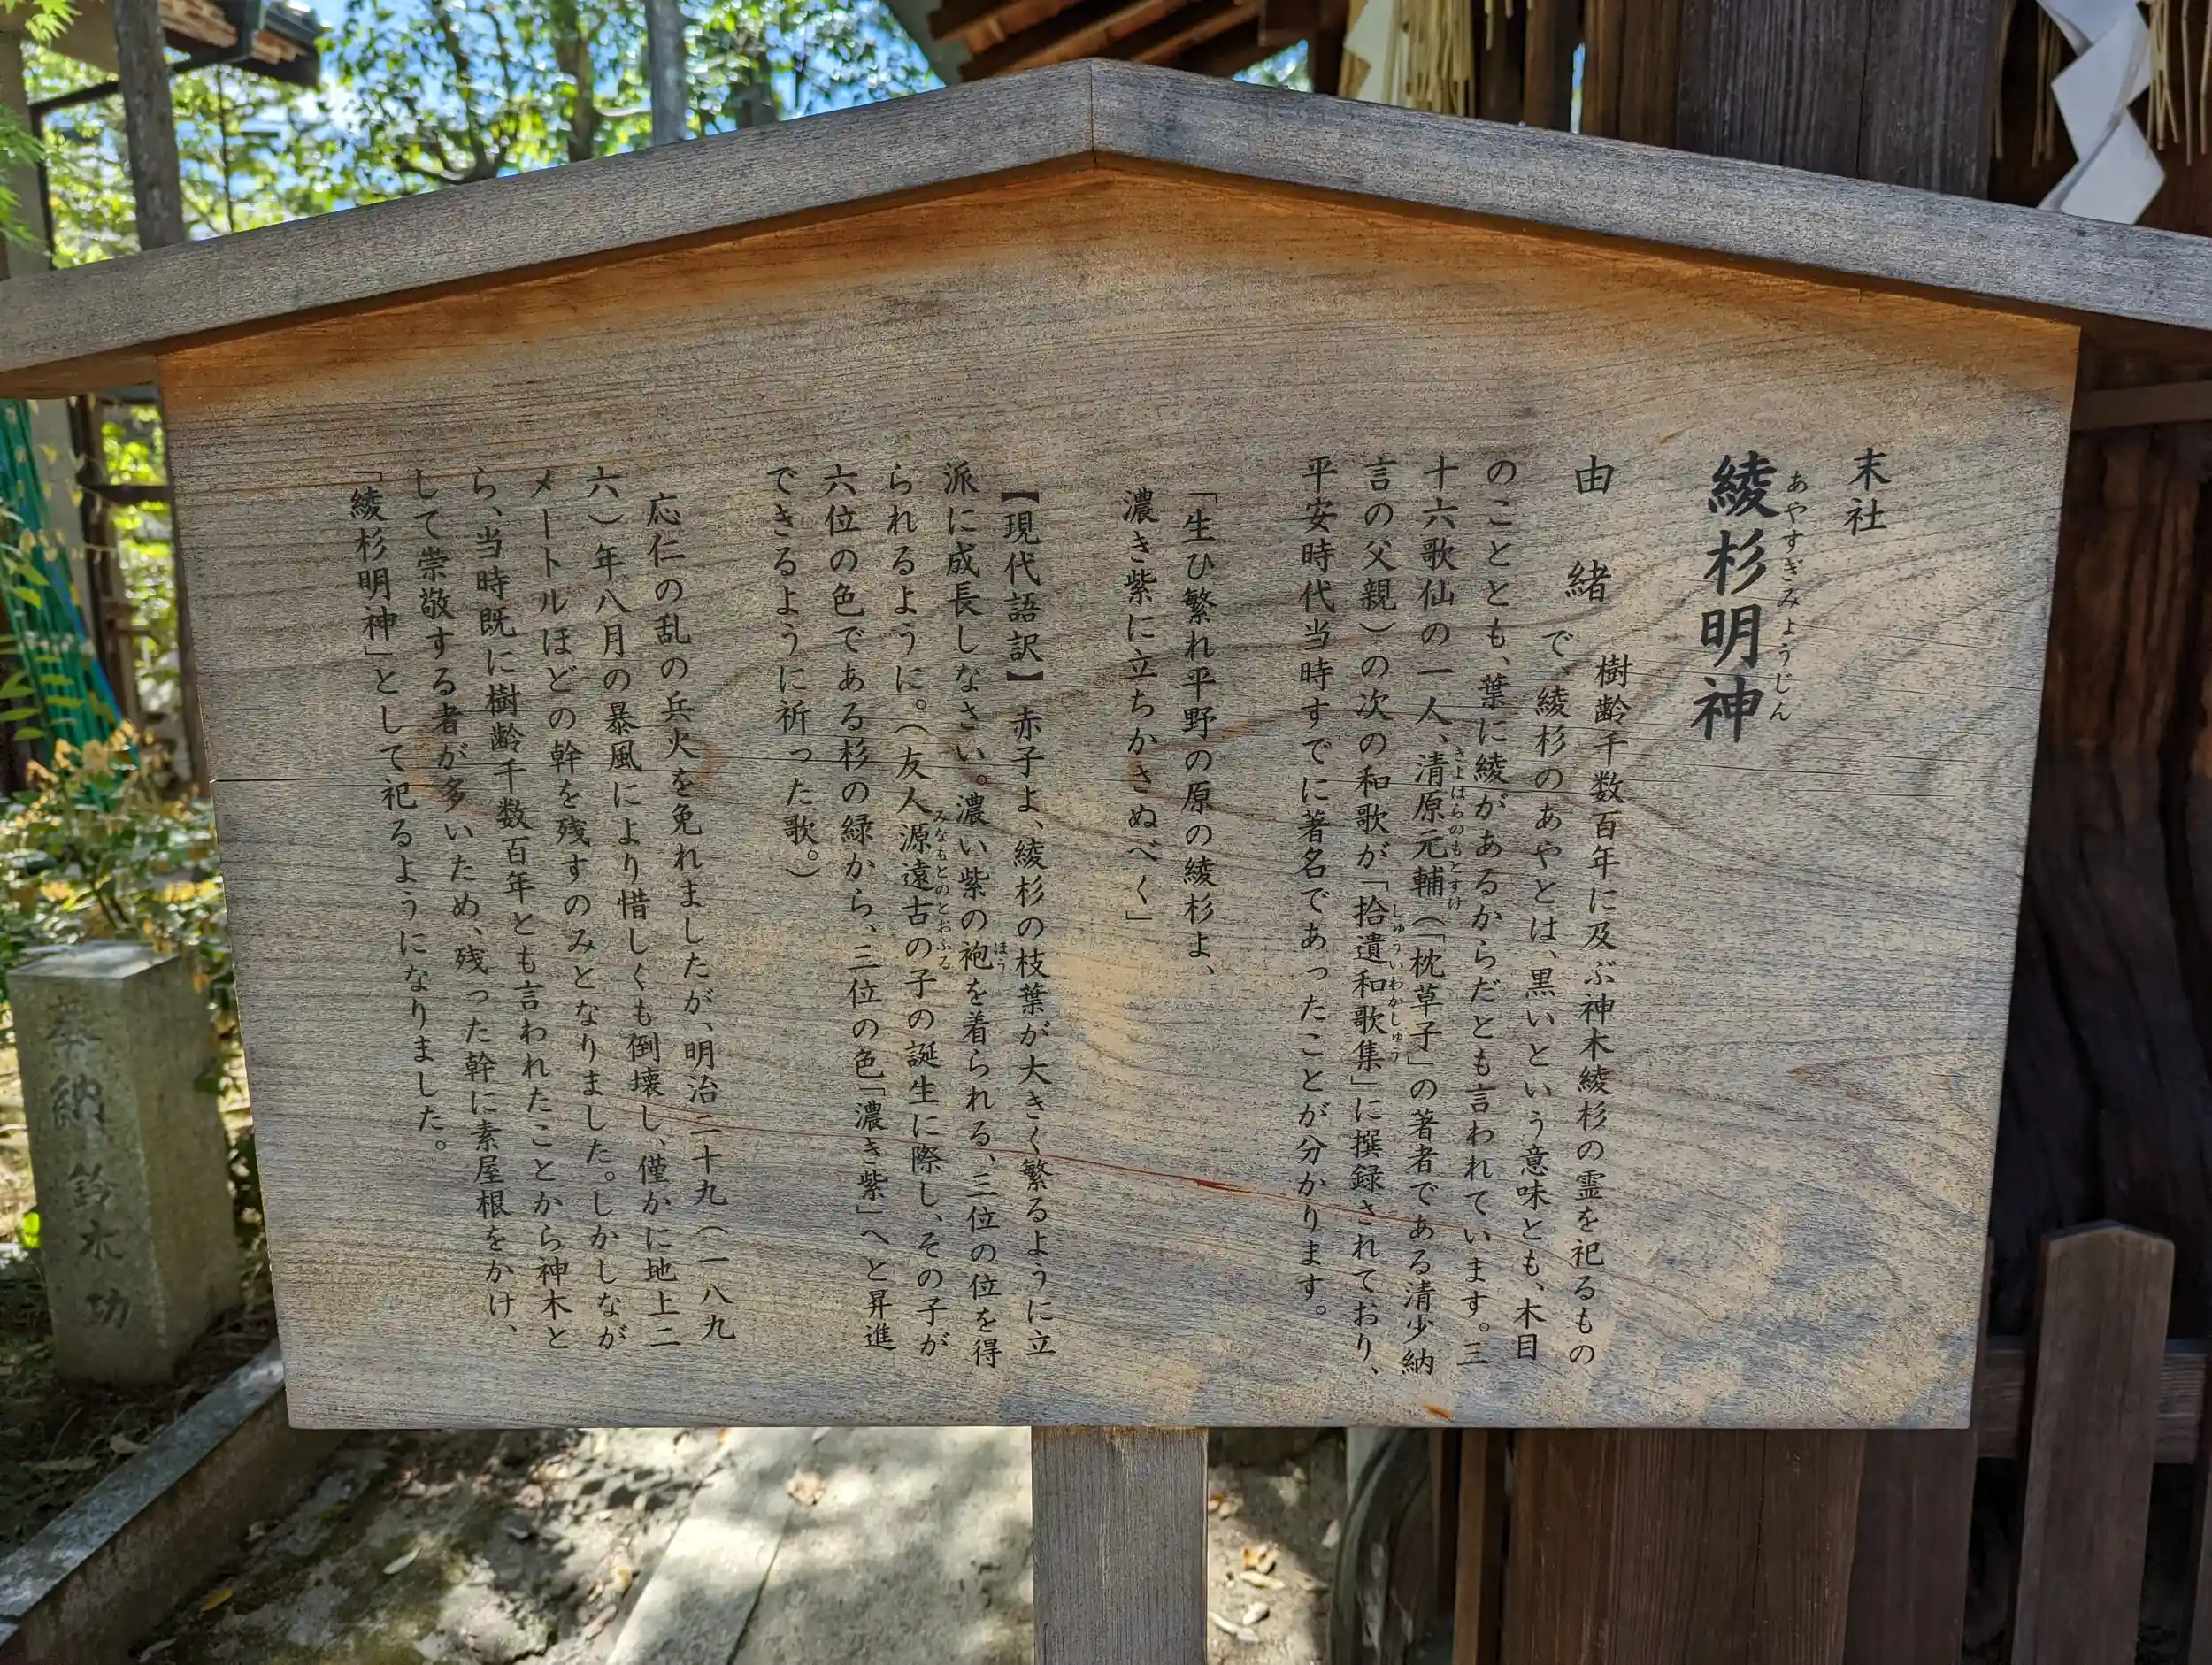 末社
綾杉明神
あやすぎみようじん
由緒
樹齢千数百年に及ぶ神木綾杉の霊を祀るもの
で、綾杉のあやとは、黒いという意味とも、木目
のこととも、葉に綾があるからだとも言われています。三
十六歌仙の一人、清原元輔(「枕草子」の著者である清少納
きよはらのもとすけ
言の父親)の次の和歌が「拾遺和歌集」に撰録されており、
しゅういわかしゅう
平安時代当時すでに著名であったことが分かります。
「生ひ繁れ平野の原の綾杉よ、
濃き紫に立ちかさぬべく」
【現代語訳】赤子よ、綾杉の枝葉が大きく繁るように立
派に成長しなさい。濃い紫の袍を着られる、三位の位を得
ほう
られるように。(友人源遠古の子の誕生に際し、その子が
みなもとのとおふる
六位の色である杉の緑から、三位の色「濃き紫」へと昇進
できるように祈った歌。)
応仁の乱の兵火を免れましたが、明治二十九(一八九
六)年八月の暴風により惜しくも倒壊し、僅かに地上二
メートルほどの幹を残すのみとなりました。しかしなが
ら、当時既に樹齢千数百年とも言われたことから神木と
して崇敬する者が多いため、残った幹に素屋根をかけ、
「綾杉明神」として祀るようになりました。
奉納 鈴木功